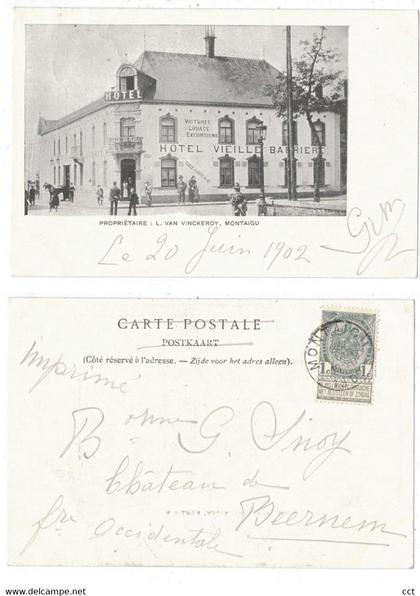 HÔTEL
VOITURES
LOUAGE
EXCURSIONS
HÔTEL VIEILLE BARRIERE
PROPRIÉTAIRE : L. VAN VINCKEROY, MONTAIGU
Le 20 Juin 1902
CARTE POSTALE
POSTKAART
(Côté réservé à l'adresse. — Zijde voor het adres alleen).
Imprimé
MONTAIGU
1c 1c
NIET BESTELLEN OP ZONDAG
Bonne G. Snoy
Château de
Beernem
fre Occidentale
cct